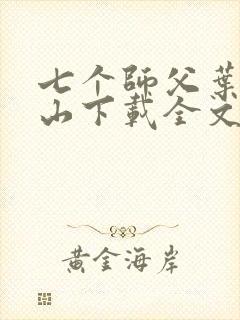 七个師父葉
山下載全文
黄金海岸